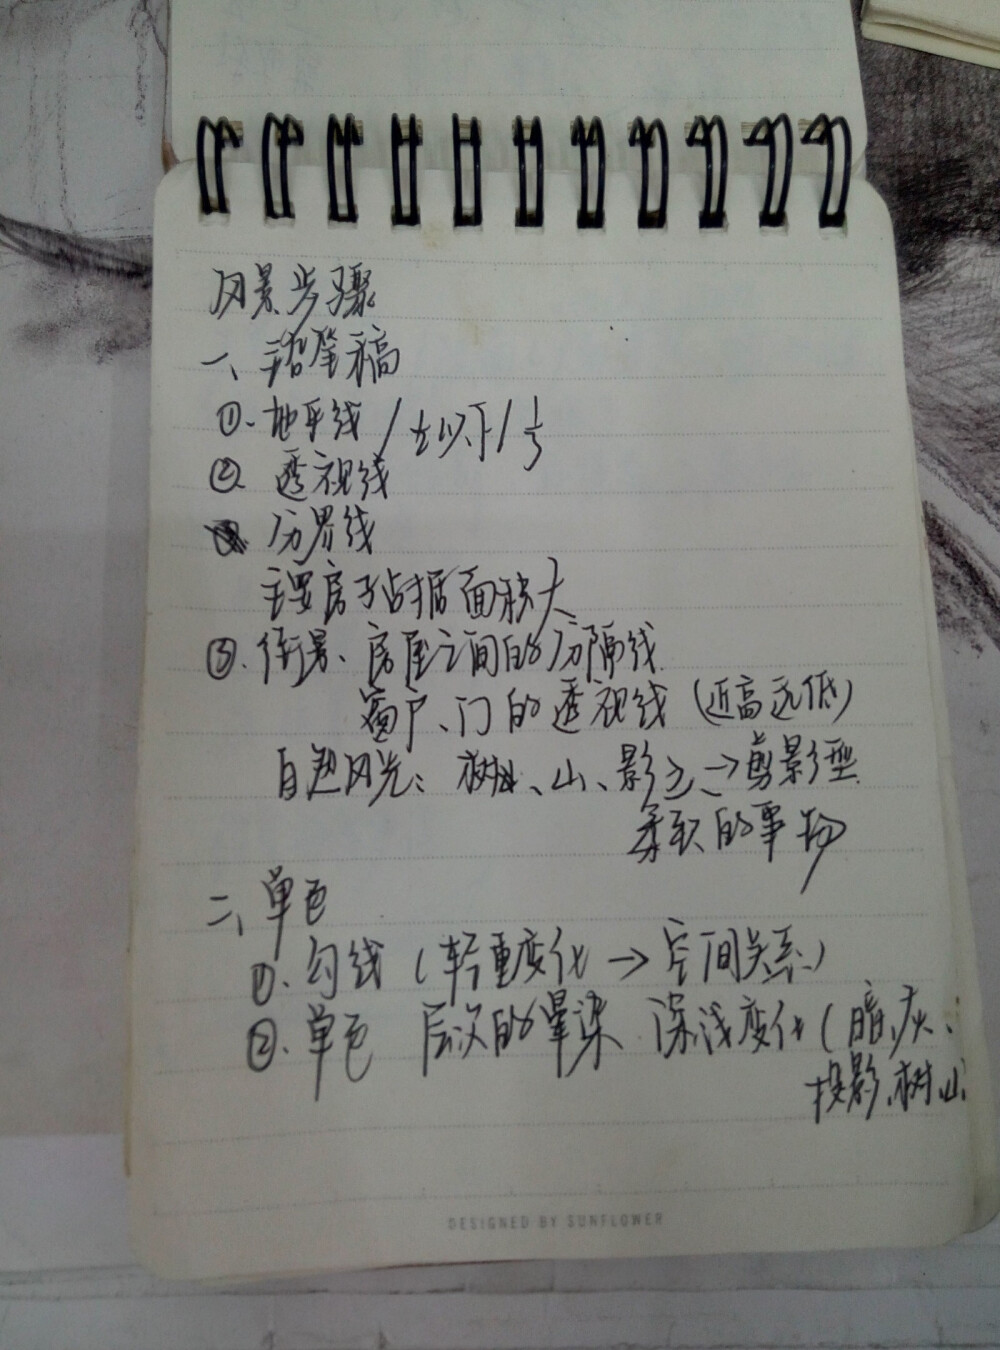 风景步骤
一、铅笔稿
①.地平线 / 以下 / 1/3
② 透视线
分界线
主要房子占据面积大
③.街景、房屋之间的分隔线
窗户、门的透视线 (近高远低)
自然风光: 树、山、影 → 剪影型
柔软的事物
二、单色
①.勾线 (轻重变化 → 空间关系)
②.单色 层次的晕染 深浅变化 (暗、灰、
投影、树、山
DESIGNED BY SUNFLOWER